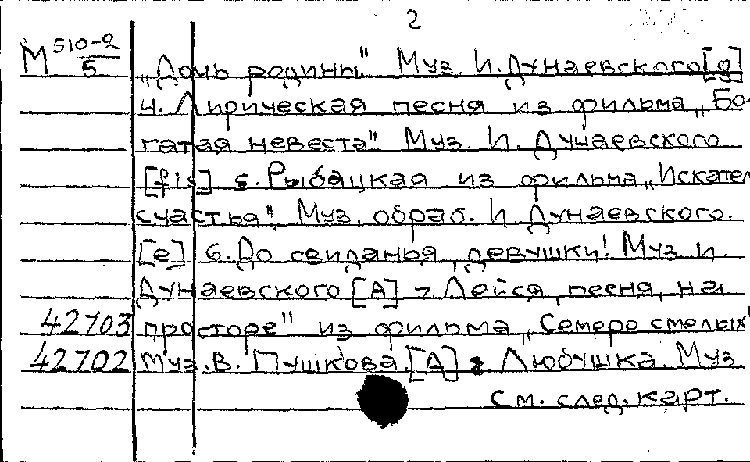 2
М 510-2/5 „Дочь родины" Муз. И. Дунаевского [g]
4. Лирическая песня из фильма „Бо-
гатая невеста" Муз. И. Дунаевского
[fis] 5. Рыбацкая из фильма „Искатели
счастья". Муз. обраб. И. Дунаевского.
[e] 6. До свиданья, девушки! Муз. И.
Дунаевского [A] 7 Лейся, песня, на
42703 просторе" из фильма „Семеро смелых"
42702 Муз. В. Пушкова. [A] 8 Любушка. Муз
См. след. карт.